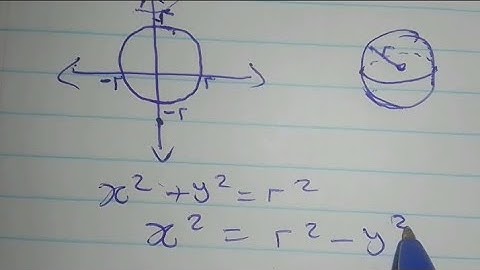 r
-r r
r
-r
x² + y² = r²
x² = r² - y²